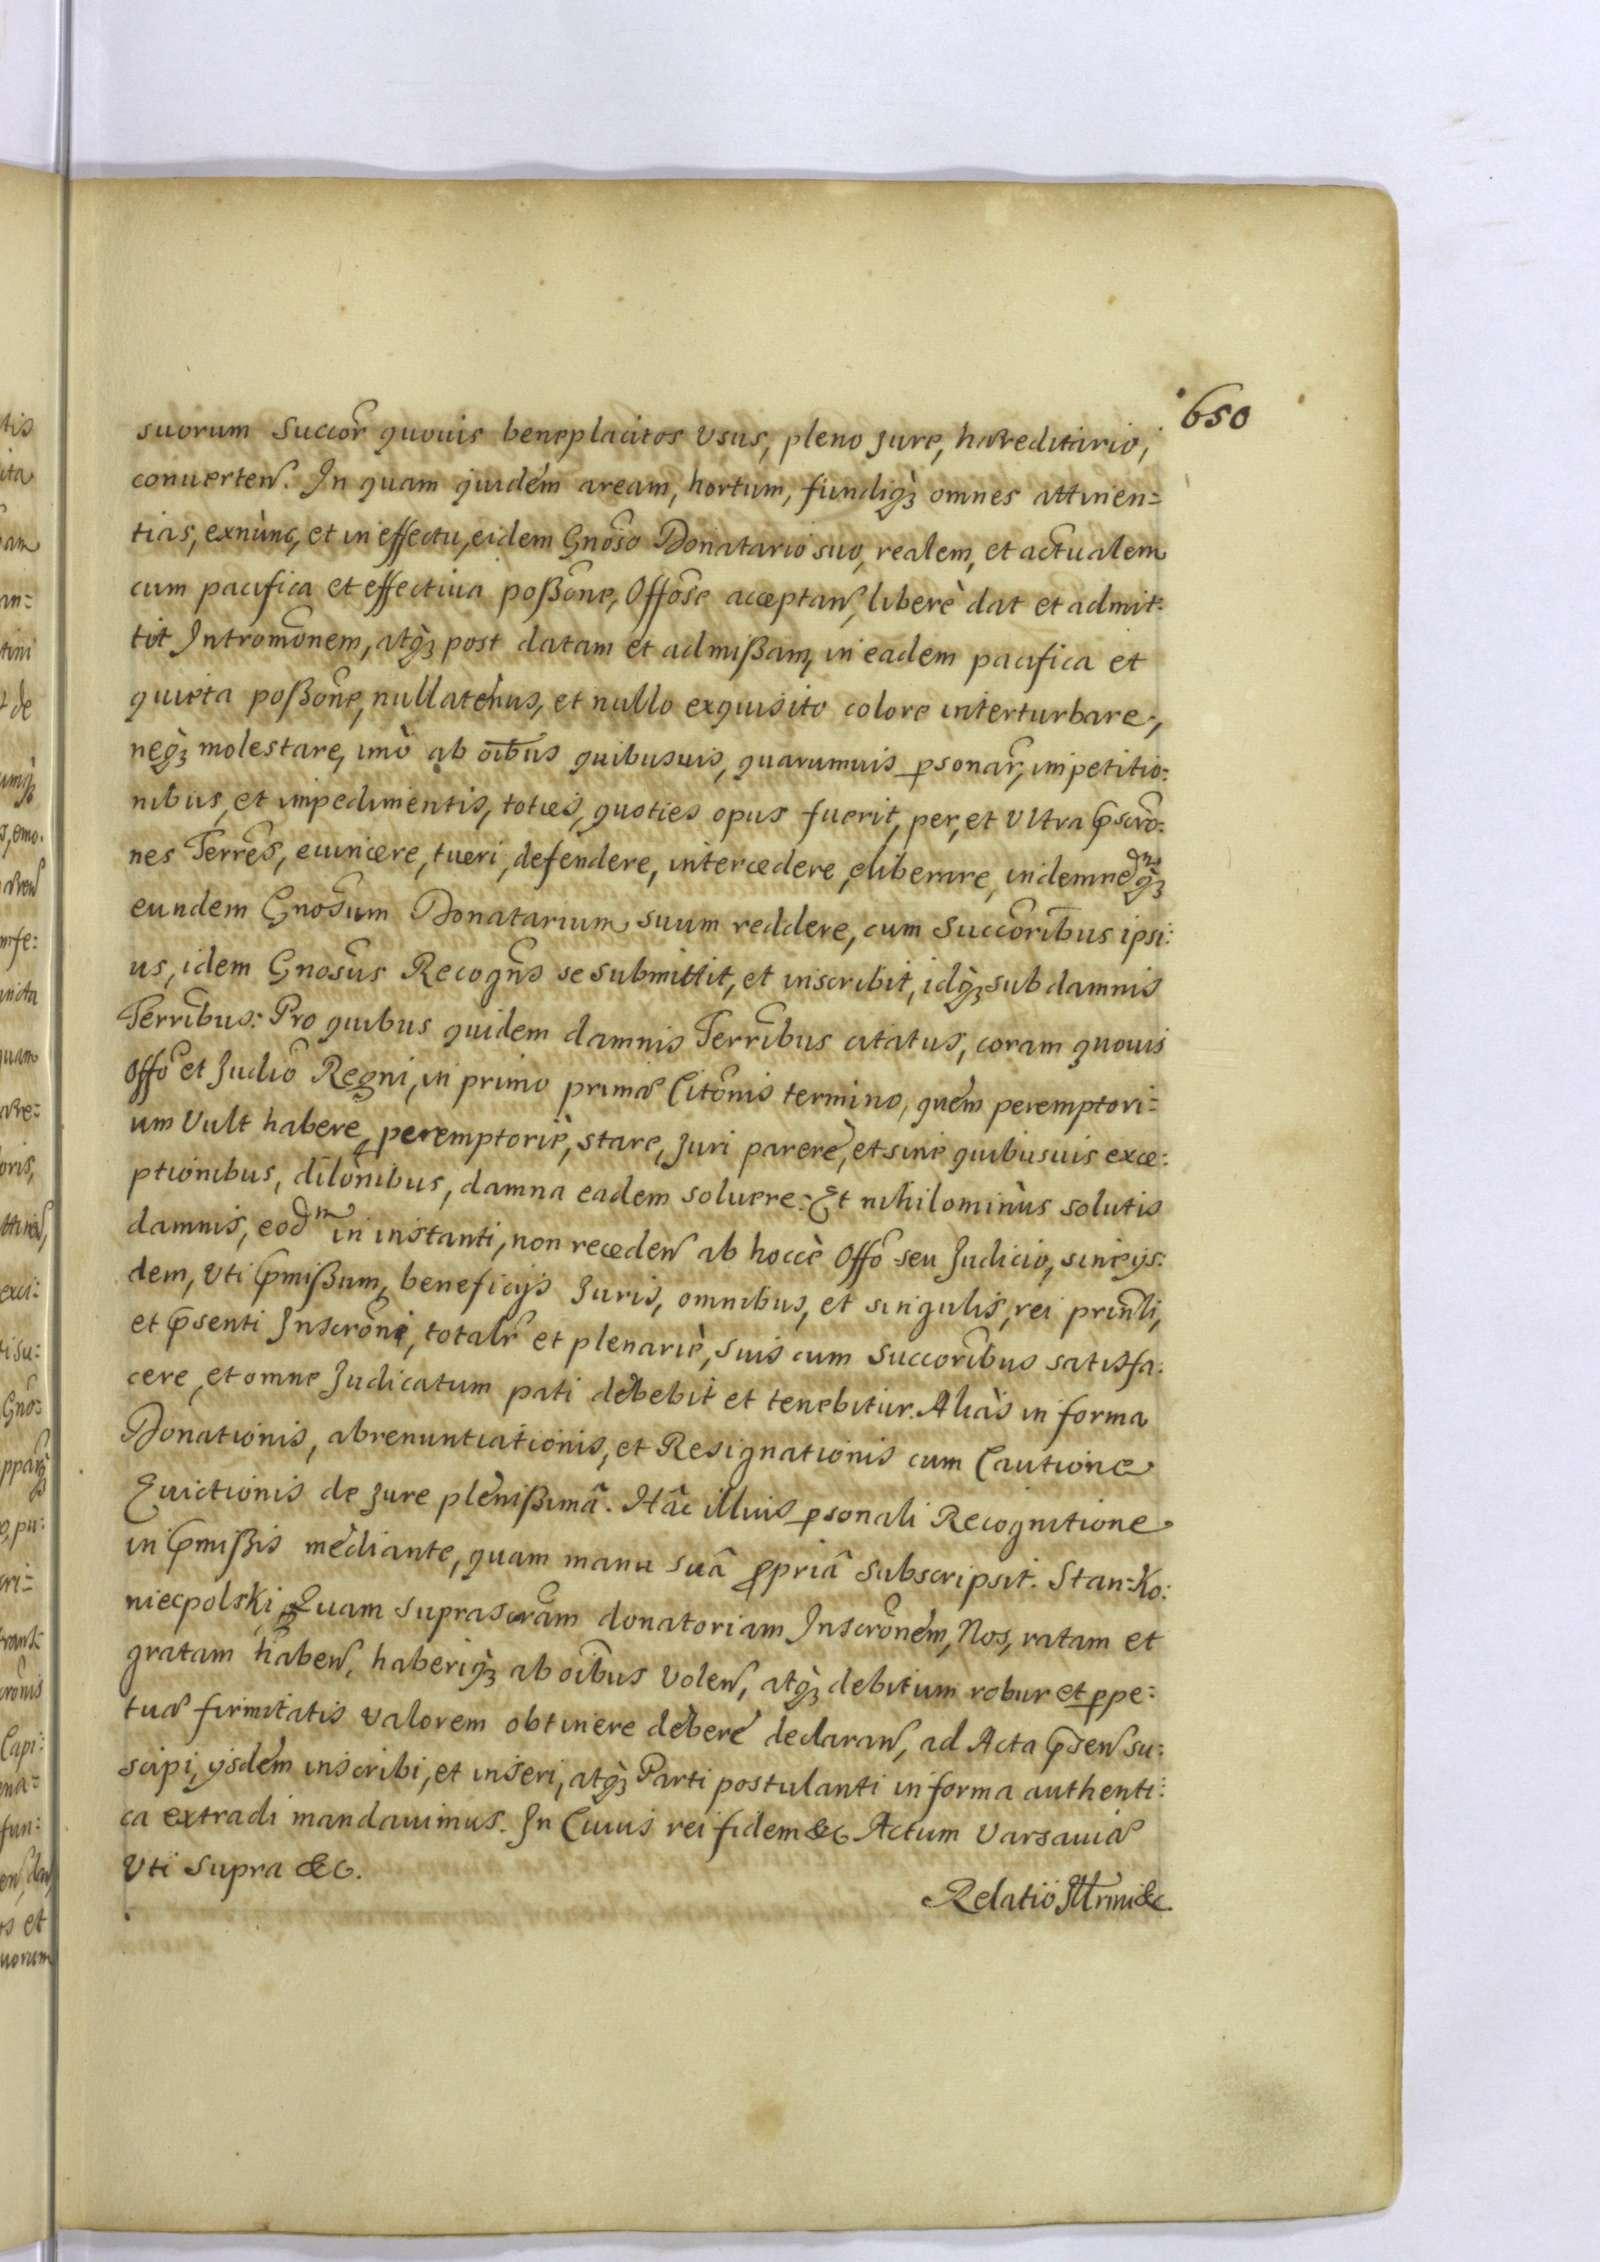 650
suorum Succor̃ quouis beneplacitos Vsus, pleno Jure, hæreditario,
conuerteñ. In quam quidem aream, hortum, fundiq́ꝫ omnes attinen=
tias, exnùnc, et in effectu, eidem Gnõso Donatario suo, realem, et actualem
cum pacifica et effectiua poßõne, Offõse acceptañ, liberè dat et admit:
tit Intromõnem, atq́ꝫ post datam et admißam, in eadem pacifica et
quieta poßõne, nullatenus, et nullo exquisito colore interturbare,
neq́ꝫ molestare, imò ab oĩbus quibusuis, quarumuis ꝑsonar̃, impetitio:
nibus, et impedimentis, toties, quoties opus fuerit, per, et Vltra p̃scrõ:
nes Terrẽs, euincere, tueri, defendere, intercedere, eliberare, indemneq́ꝫ
eundem Gnõsum Donatarium suum reddere, cum Succorĩbus ipsi:
us, idem Gnosũs Recogñs se submittit, et inscribit, idq́ꝫ sub damnis
Terrĩbus: Pro quibus quidem damnis Terrĩbus citatus, coram quouis
Offõ et Judiõ Regni, in primo primæ Citõnis termino, quem peremptori=
um Vult habere, peremptoriè, stare, Juri parere, et sine quibusuis exce:
ptionibus, dilõnibus, damna eadem soluere: Et nihilominùs solutis
damnis, eodm in instanti, non recedeñ ab hoccè Offõ seu Judicio, sine ijs:
dem, Vti p̃mißum, beneficijs Juris, omnibus, et singulis, rei prinĩli,
et p̃senti Inscrõni, totalr̃ et plenariè, suis cum Succorĩbus satisfa:
cere, et omne Judicatum pati debebit et tenebitur. Aliàs in forma
Donationis, abrenuntiationis, et Resignationis cum Cautione
Euictionis de Jure plenißimâ. Hâc illius ꝑsonali Recognitione
in p̃mißis mediante, quam manu suâ ꝓpriâ subscripsit. Stan: Ko:
niecpolski, Quam suprascrãm donatoriam Inscrõnem, Nos, ratam et
gratam habeñ, haberiq́ꝫ ab oĩbus Voleñ, atq́ꝫ debitum robur et ꝑpe:
tuæ firmitatis Valorem obtinere debere declarañ, ad Acta p̃señ su:
scipi, ijsdem inscribi, et inseri, atq́ꝫ Parti postulanti in forma authenti:
ca extradi mandauimus. In Cuius rei fidem &c. Actum Varsauiæ
Vti supra &c.
Relatio Illrmi &c.